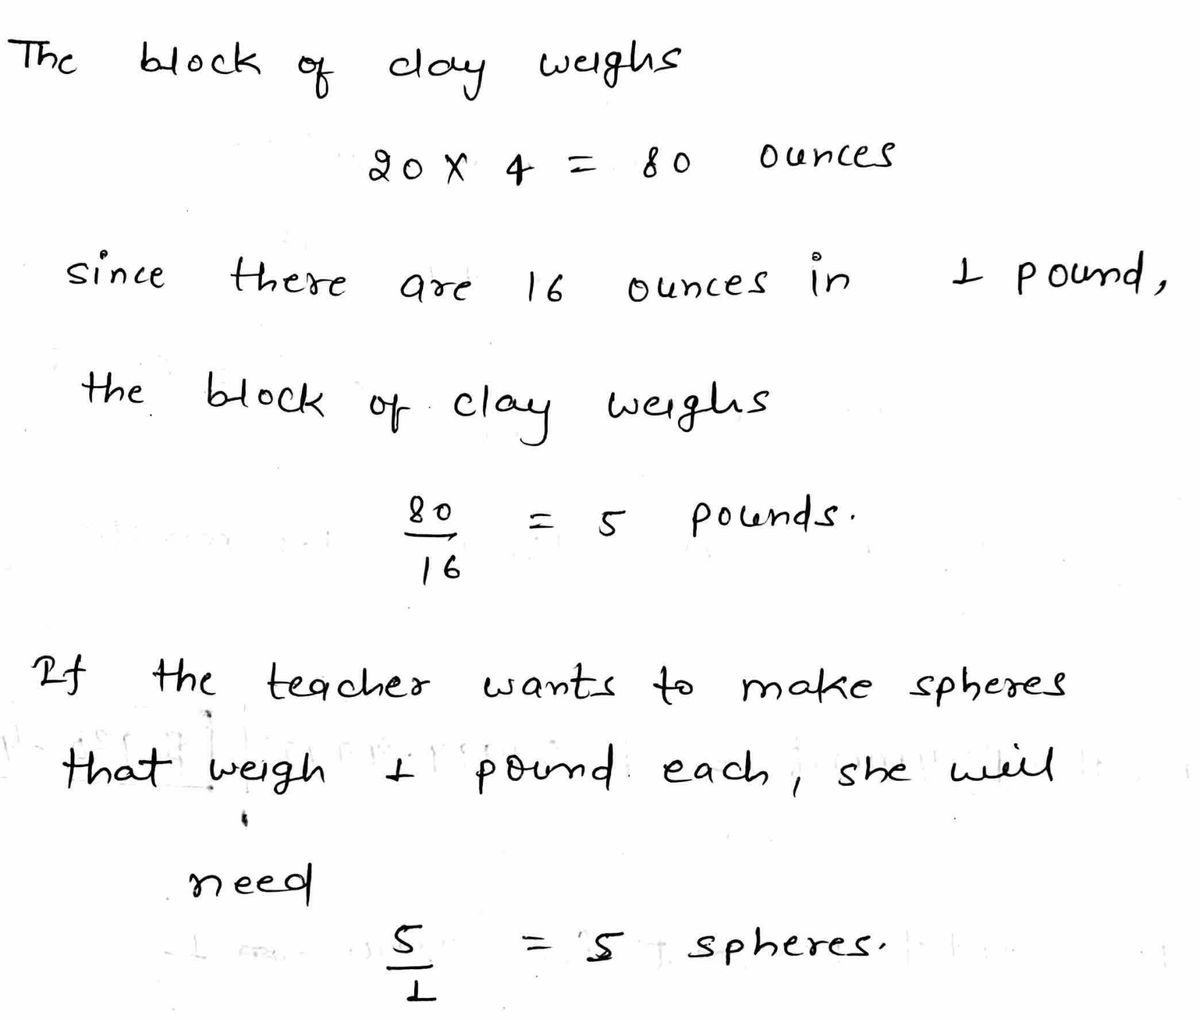 The block of clay weighs
20 X 4 = 80 ounces
since there are 16 ounces in 1 pound,
the block of clay weighs
80/16 = 5 pounds.
If the teacher wants to make spheres
that weigh 1 pound each, she will
need
5/1 = 5 spheres.